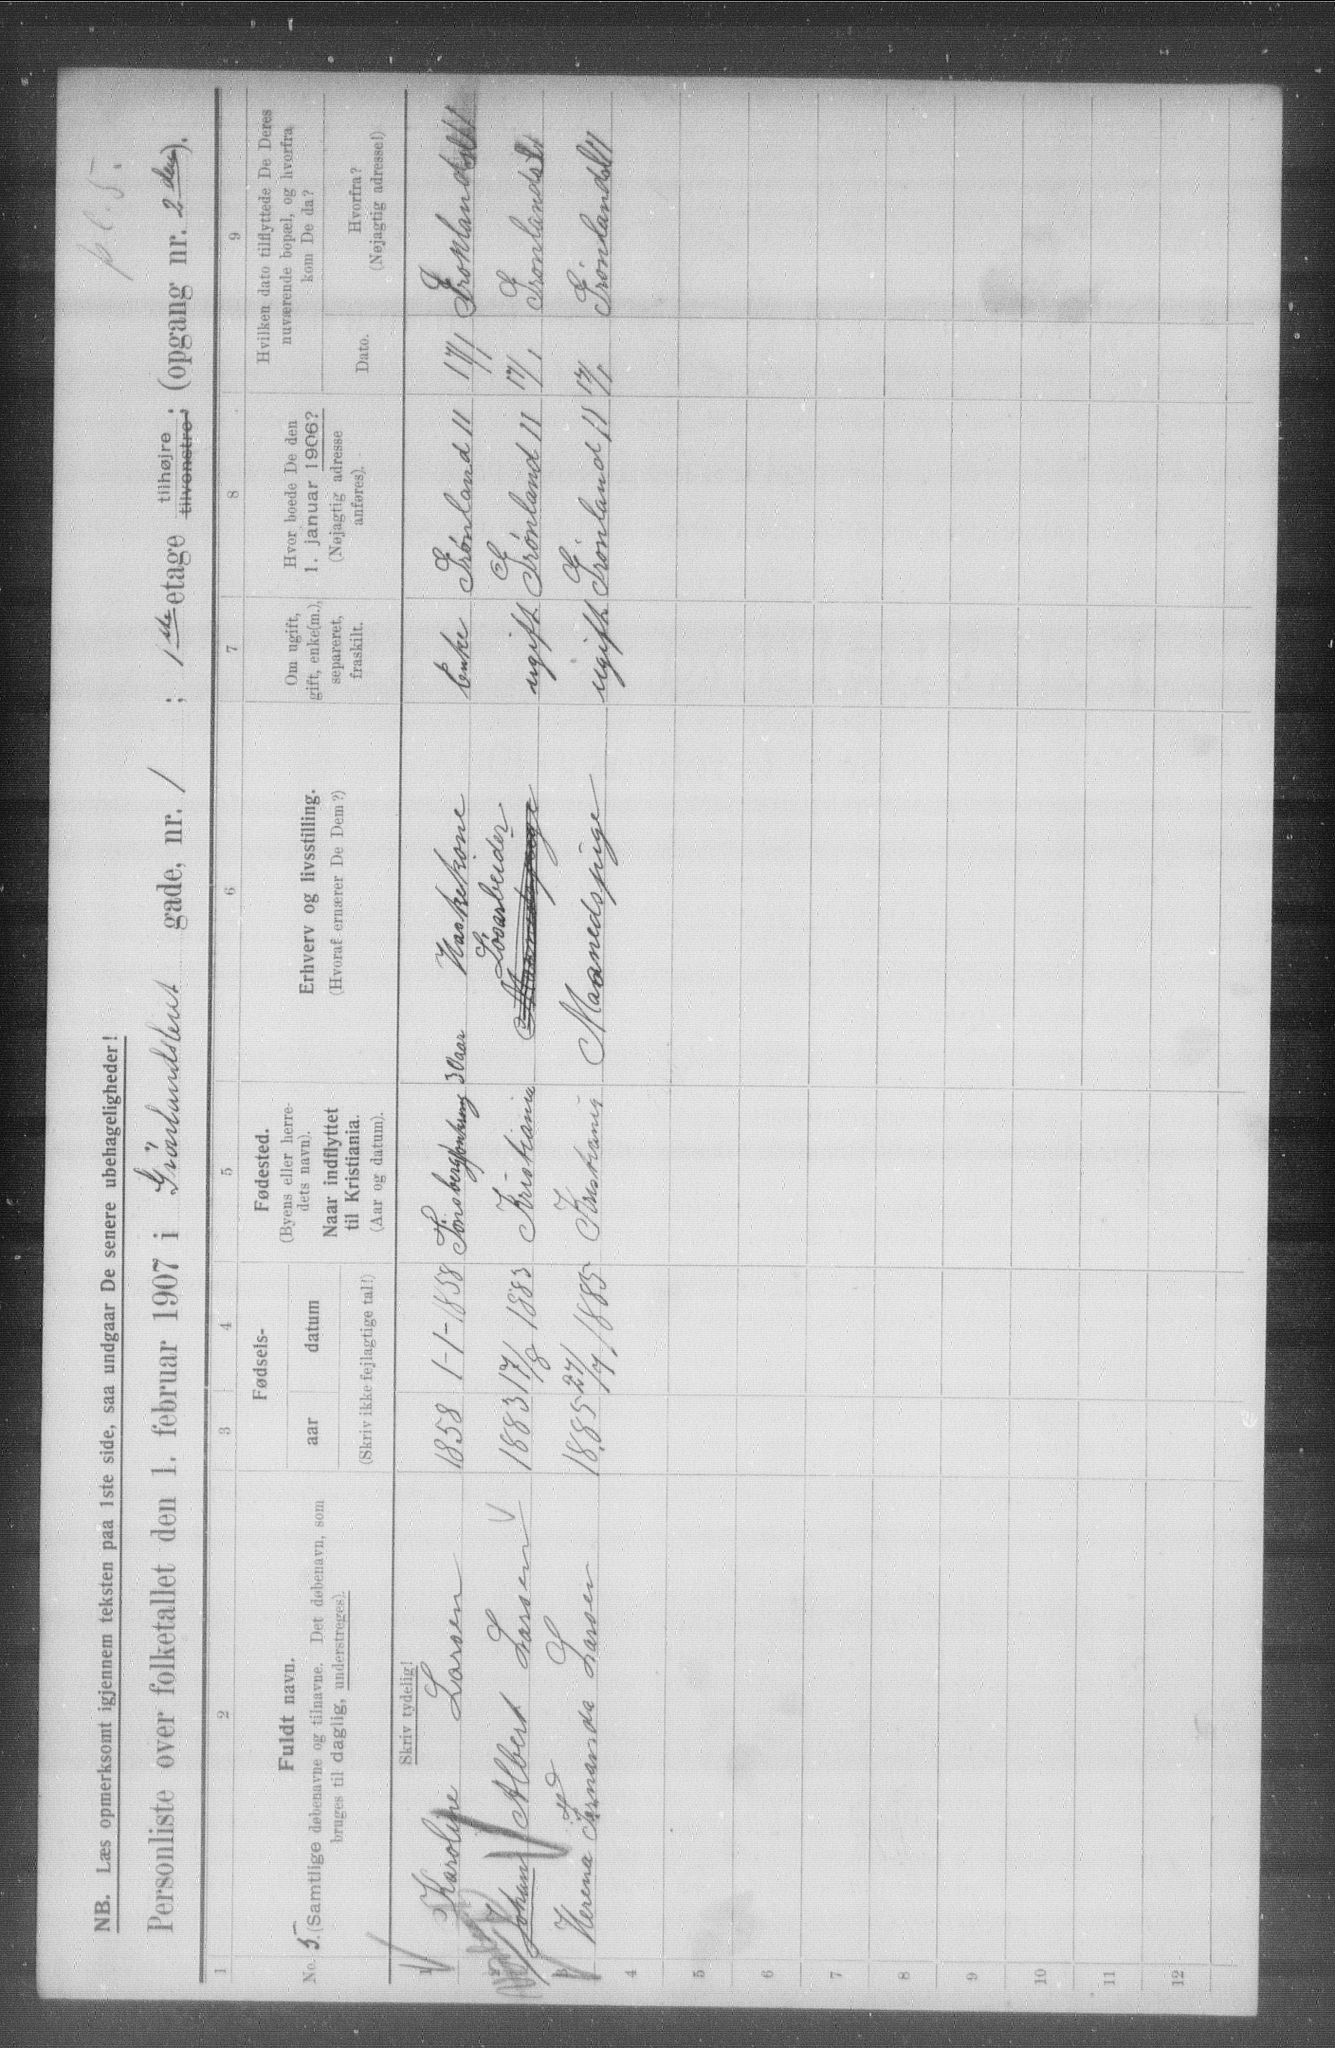 pl. 5.
NB. Læs opmerksomt igjennem teksten paa 1ste side, saa undgaar De senere ubehageligheder!
Personliste over folketallet den 1. februar 1907 i Grønlandsleret gade, nr. 1 ; 1ste etage tilhøjre tilvenstre; (opgang nr. 2den).
1 2 3 4 5 6 7 8 9
No. 5.
Fuldt navn.
(Samtlige døbenavne og tilnavne. Det døbenavn, som
bruges til daglig, understreges).
Fødsels-
aar datum
(Skriv ikke fejlagtige tal!)
Fødested.
(Byens eller herre-
dets navn).
Naar indflyttet
til Kristiania.
(Aar og datum).
Erhverv og livsstilling.
(Hvoraf ernærer De Dem?)
Om ugift,
gift, enke(m.),
separeret,
fraskilt.
Hvor boede De den
1. januar 1906?
(Nøjagtig adresse
anføres).
Hvilken dato tilflyttede De Deres
nuværende bopæl, og hvorfra
kom De da?
Dato.
Hvorfra?
(Nøjagtig adresse!)
Skriv tydelig!
1 Karoline Larsen 1858 1-1-1858 Tønsberg 30 aar Vaskekone Enke Grønland 11 17/1
2 Johan Albert Larsen 1883 17/8 1883 Kristiania Løsarbeider ugift Grønland 11 17/1
3 Verena Fernanda Larsen 1885 27/7 1885 Kristiania Maanedspige ugift Grønland 11 17/1
4
5
6
7
8
9
10
11
12